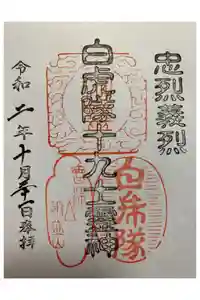 忠烈義烈
白虎隊十九士靈神
白乕隊
令和二年十月 一日奉拝